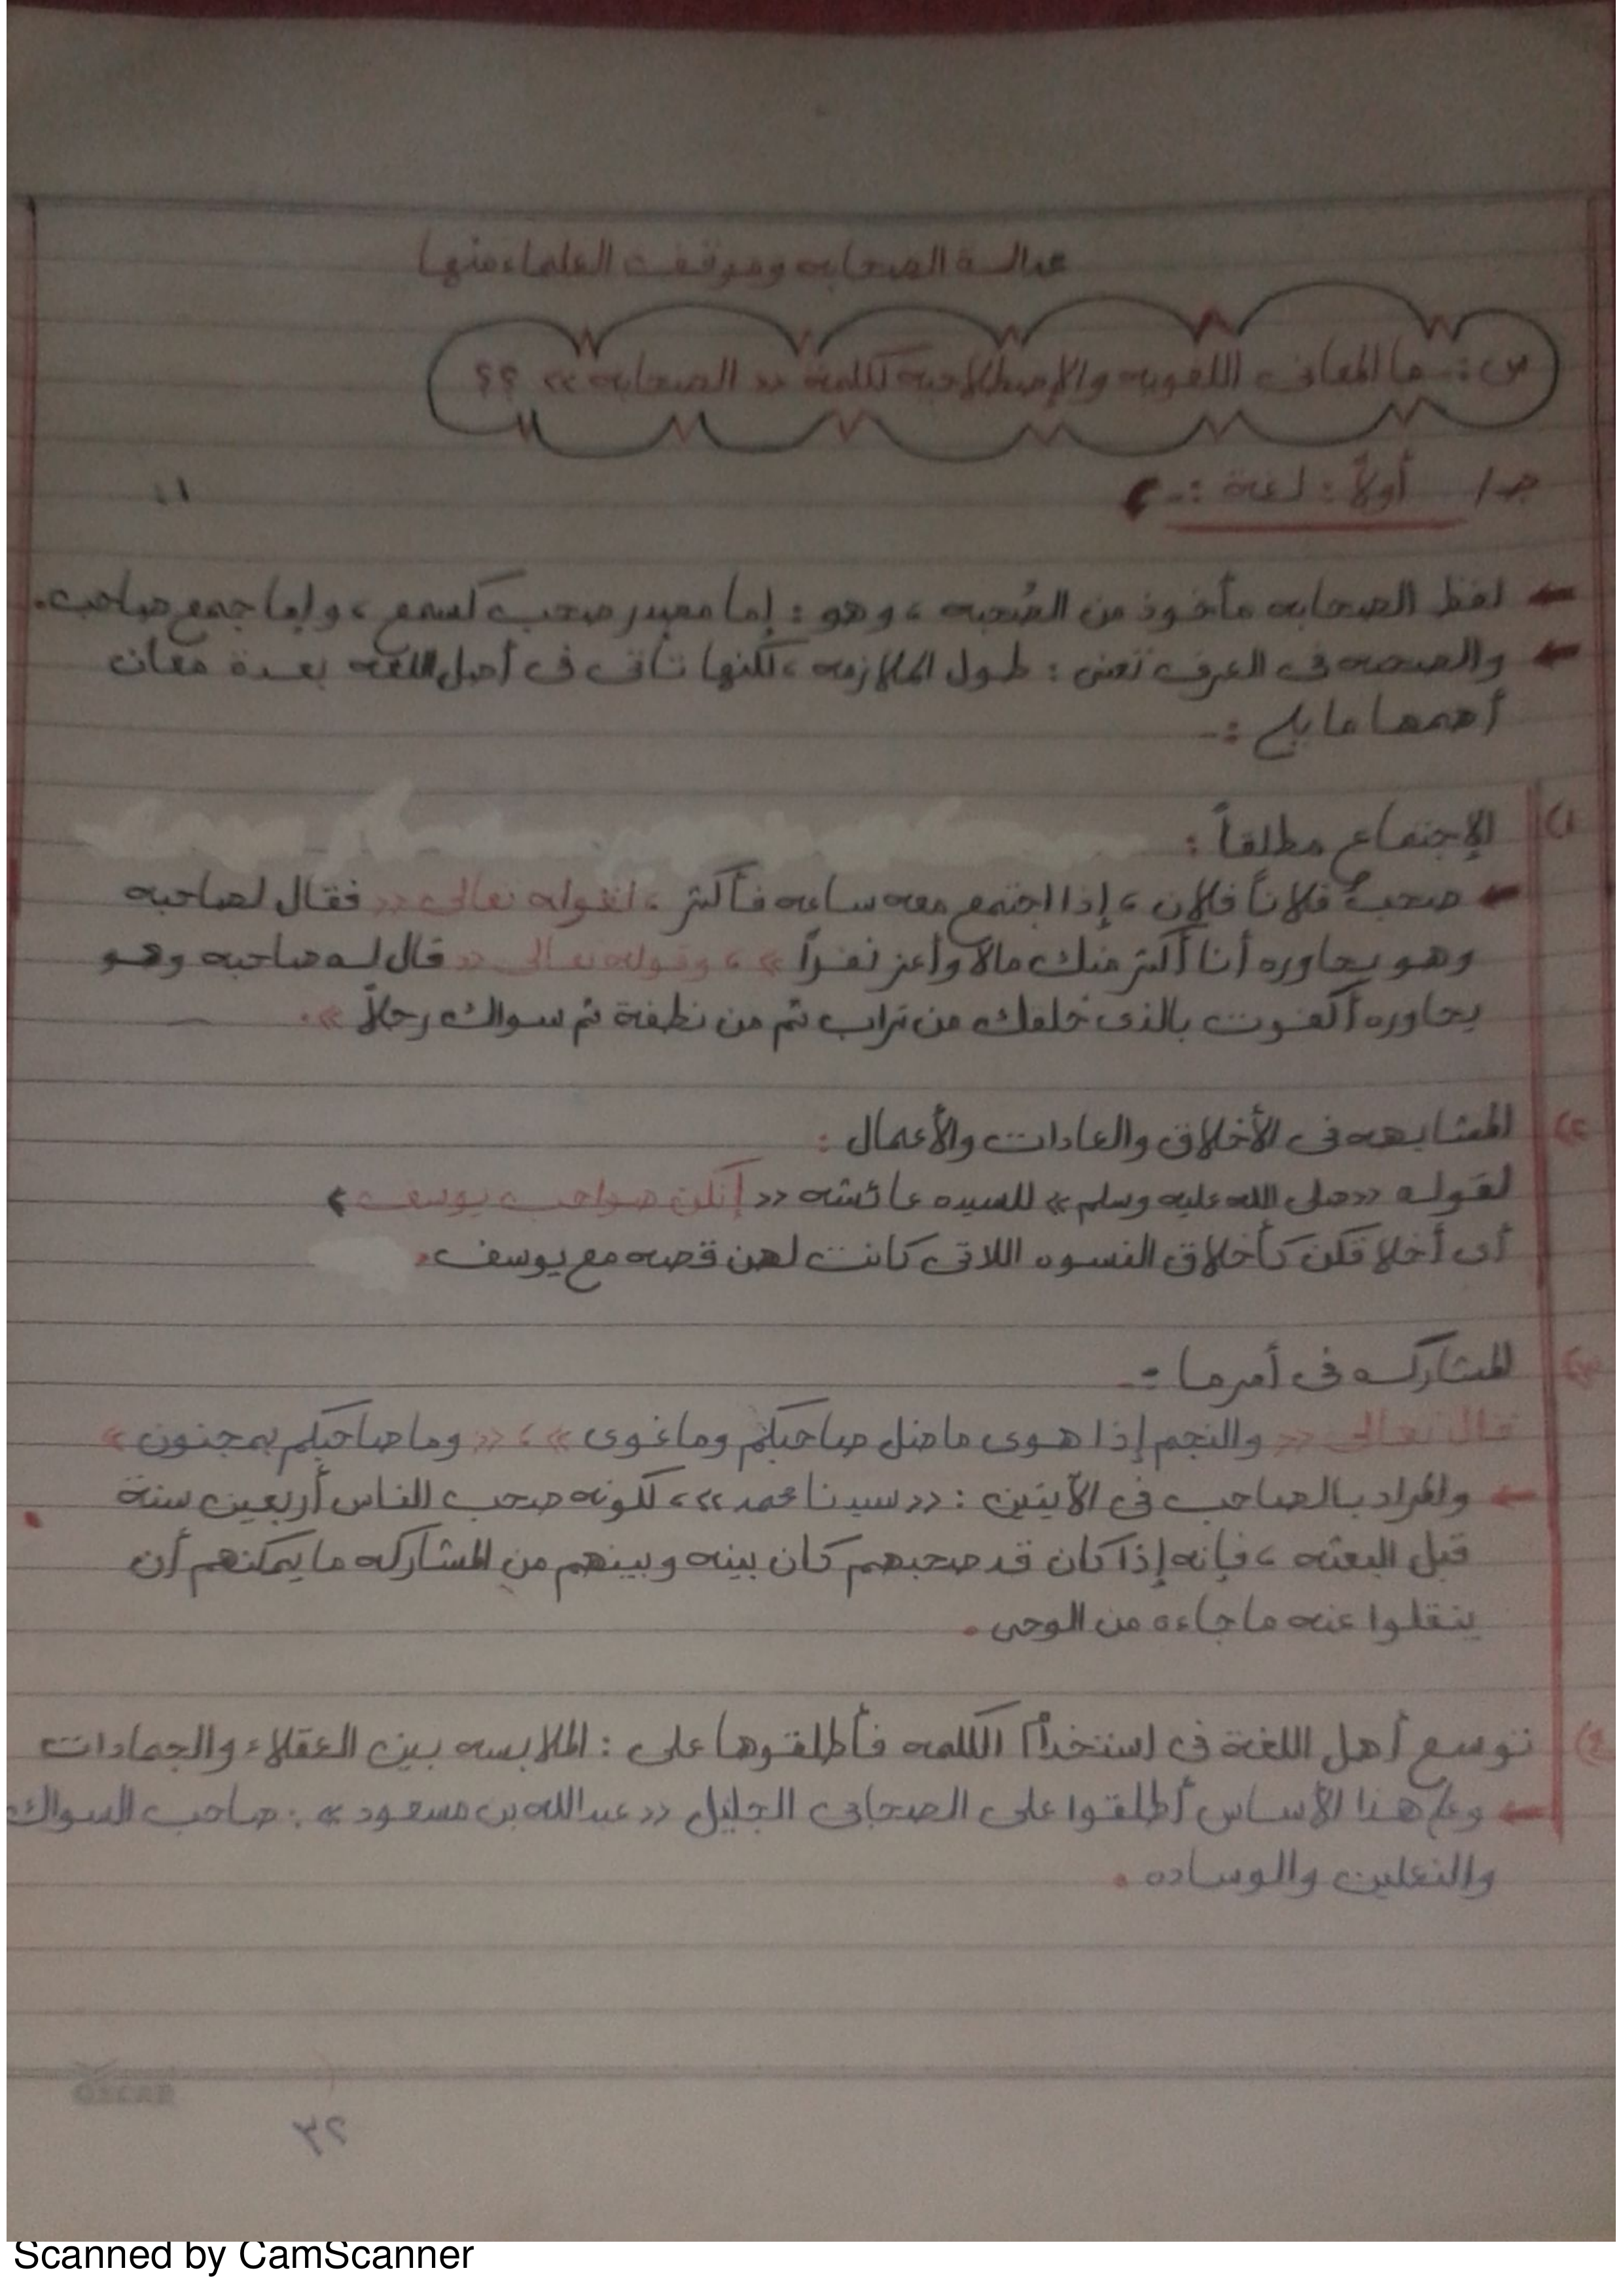 عدالة الصحابه وموقف العلماء منها
س: ما المعانى اللغويه والإصطلاحيه لكلمة « الصحابه » ؟؟
جـ/ أولاً : لغة :-
لفظ الصحابه مأخوذ من الصُحبه ، وهو : إما مصدر صحب كسمع ، وإما جمع صاحب.
والصحبه فى العرف تعنى : طول الملازمه ، لكنها تأتى فى أصل اللغه بعدة معان
أهمها ما يلى :-
١) الإجتماع مطلقاً :
صحب فلاناً فلان ، إذا اجتمع معه ساعه فأكثر ، لقوله تعالى « فقال لصاحبه
وهو يحاوره أنا أكثر منك مالا وأعز نفراً » ، وقوله تعالى « قال له صاحبه وهو
يحاوره أكفرت بالذى خلقك من تراب ثم من نطفة ثم سواك رجلاً ».
٢) المشابهه فى الأخلاق والعادات والأعمال :
لقوله «صلى الله عليه وسلم» للسيده عائشه « إنكن صواحب يوسف »
أى أخلاقكن كأخلاق النسوه اللاتى كانت لهن قصه مع يوسف.
٣) المشاركه فى أمر ما :-
قال تعالى « والنجم إذا هوى ما ضل صاحبكم وما غوى » ، « وما صاحبكم بمجنون »
والمراد بالصاحب فى الآيتين : « سيدنا محمد » ، لكونه صحب الناس أربعين سنة
قبل البعثه ، فإنه إذا كان قد صحبهم كان بينه وبينهم من المشاركه ما يمكنهم أن
ينقلوا عنه ما جاءه من الوحى.
٤) توسع أهل اللغة فى استخدام الكلمه فأطلقوها على : الملابسه بين العقلاء والجمادات
وعلى هذا الأساس أطلقوا على الصحابى الجليل « عبدالله بن مسعود » : صاحب السواك
والنعلين والوساده.
OSCAR
٢٢
Scanned by CamScanner